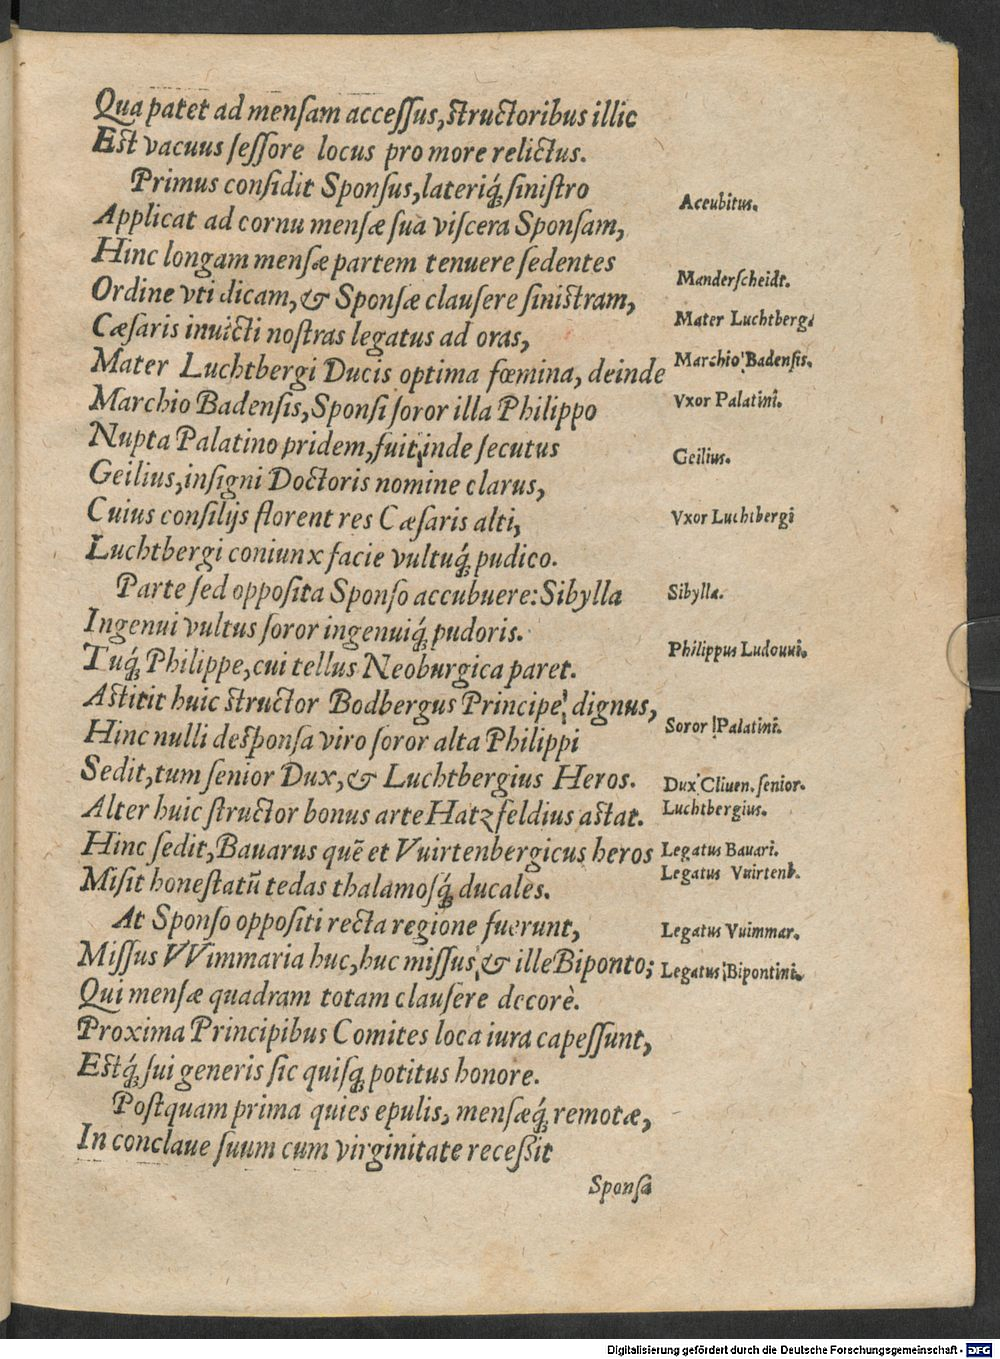 Qua patet ad menſam acceſſus, ſtructoribus illic
Eſt vacuus ſeſſore locus pro more relictus.
Primus conſidit Sponſus, lateriq́; ſiniſtro
Accubitus.
Applicat ad cornu menſæ ſua viſcera Sponſam,
Hinc longam menſæ partem tenuere ſedentes
Manderſcheidt.
Ordine vti dicam, & Sponſæ clauſere ſiniſtram,
Cæſaris inuicti noſtras legatus ad oras,
Mater Luchtbergi
Mater Luchtbergi Ducis optima fœmina, deinde
Marchio Badenſis.
Marchio Badenſis, Sponſi ſoror illa Philippo
Vxor Palatini.
Nupta Palatino pridem, fuit, inde ſecutus
Geilius, inſigni Doctoris nomine clarus,
Geilius.
Cuius conſilijs florent res Cæſaris alti,
Vxor Luchtbergi
Luchtbergi coniunx facie vultuq́; pudico.
Parte ſed oppoſita Sponſo accubuere: Sibylla
Sibylla.
Ingenui vultus ſoror ingenuiq́; pudoris.
Tuq́; Philippe, cui tellus Neoburgica paret.
Philippus Ludouui.
Aſtitit huic ſtructor Bodbergus Principe dignus,
Hinc nulli deſponſa viro ſoror alta Philippi
Soror Palatini.
Sedit, tum ſenior Dux, & Luchtbergius Heros.
Dux Cliuen. ſenior.
Alter huic ſtructor bonus arte Hatzfeldius aſtat.
Luchtbergius.
Hinc ſedit, Bauarus quē et Vuirtenbergicus heros
Legatus Bauari.
Miſit honeſtatū tedas thalamoſq́; ducales.
Legatus Vuirtenb.
At Sponſo oppoſiti recta regione fuerunt,
Legatus Vuimmar.
Miſſus VVimmaria huc, huc miſſus & ille Biponto;
Legatus Bipontini.
Qui menſæ quadram totam clauſere decorè.
Proxima Principibus Comites loca iura capeſſunt,
Eſtq́; ſui generis ſic quiſq; potitus honore.
Poſtquam prima quies epulis, menſæq́; remotæ,
In conclaue ſuum cum virginitate receßit
Sponſa
Digitalisierung gefördert durch die Deutsche Forschungsgemeinschaft - DFG